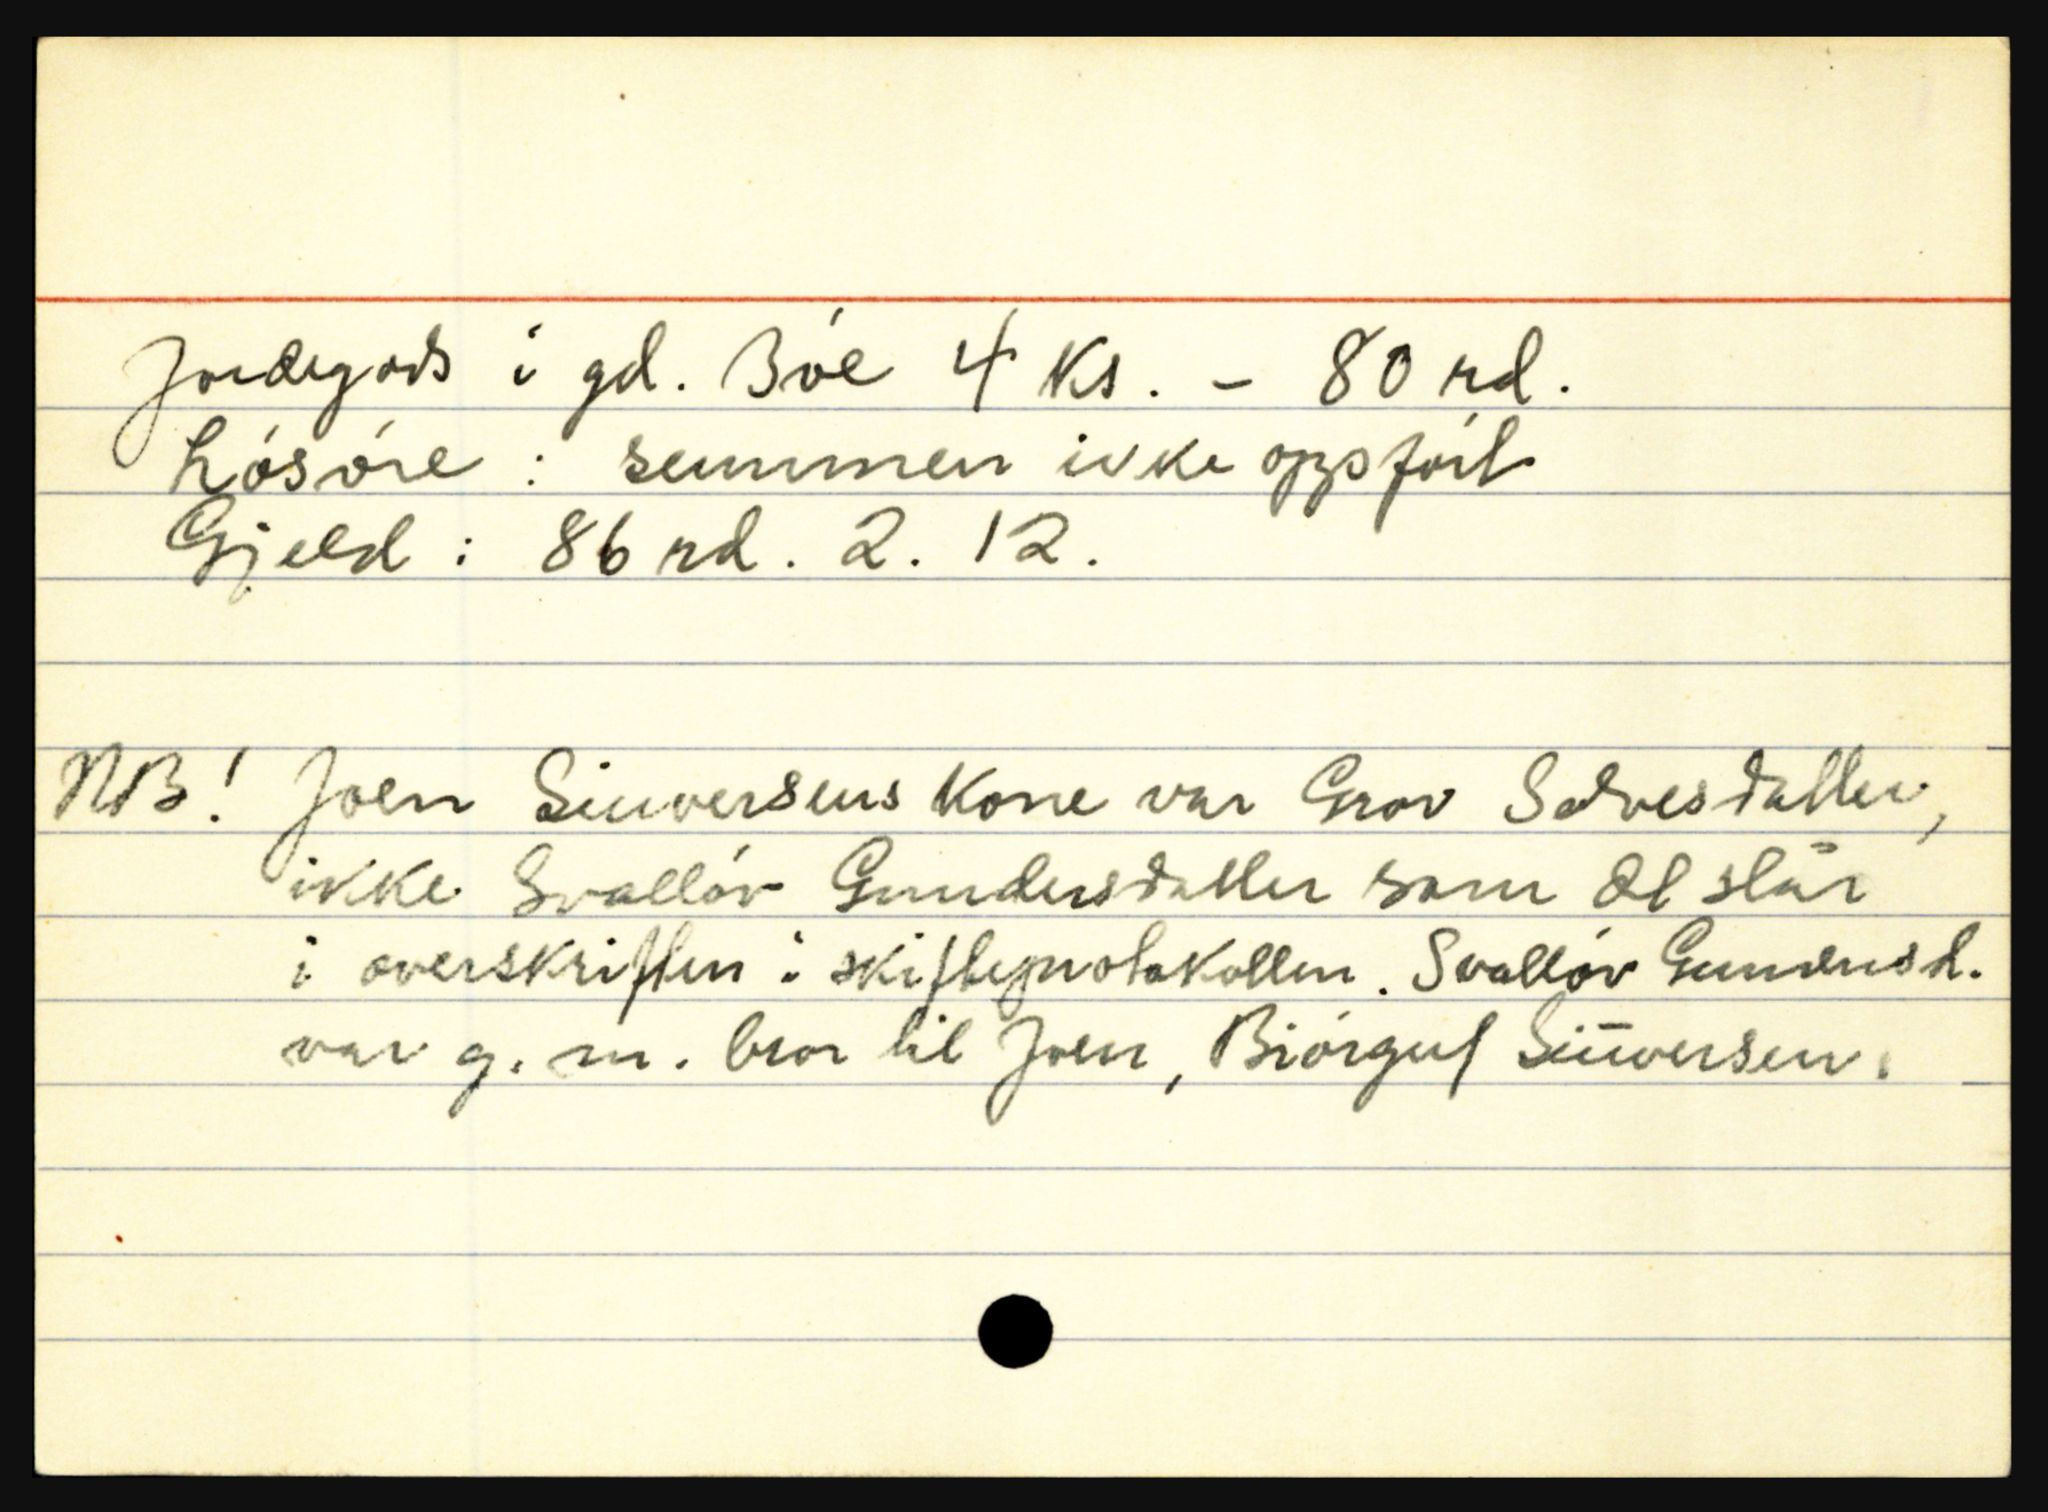 Jordegods i gd. Bóe 4 Ks. - 80 rd.
Lósóre : summen ikke oppfórt
Gjeld : 86 rd. 2. 12.
NB! Joen Siuversens kone var Grov Salvesdatter,
ikke Svallóv Gundersdatter som det står
i overskriften i skifteprotokollen. Svallóv Gundersd.
var g. m. bror til Joen, Biórguf Siuversen.